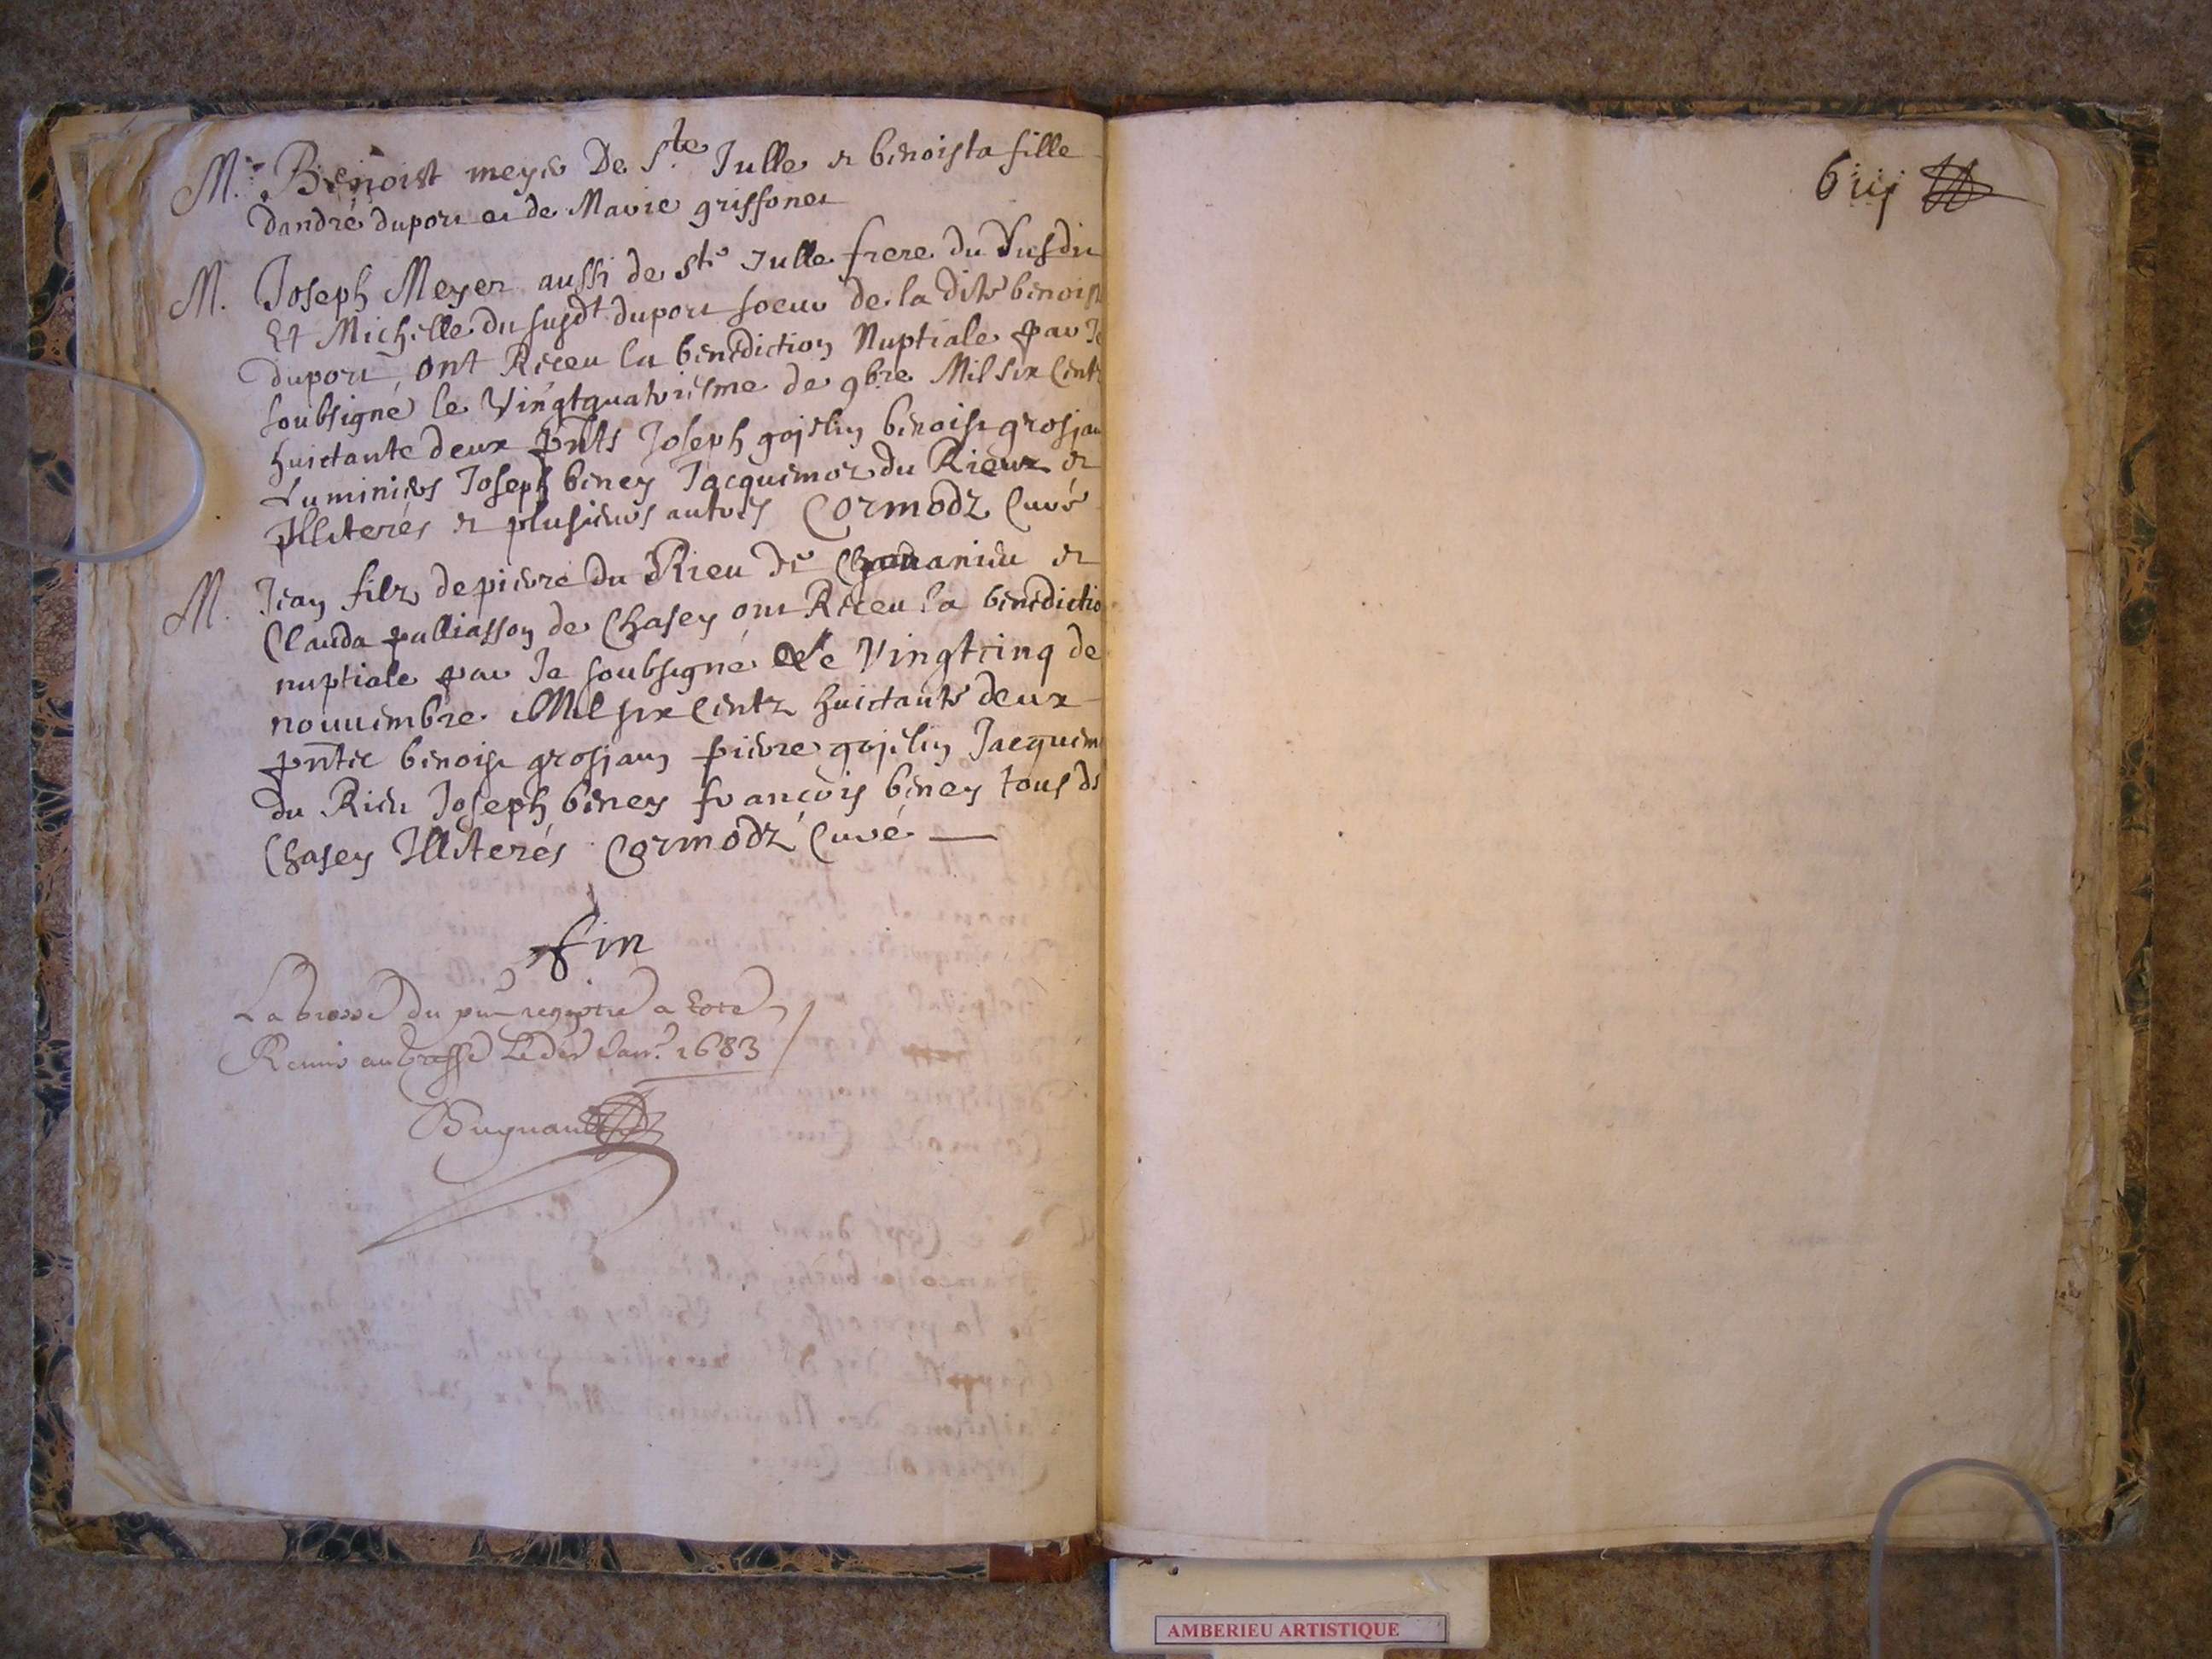 M. Benoist meyer De Ste Julle et benoista fille
dandré duport et de Marie griffonet
M. Joseph Meyer aussi de ste Julle frere du susdit
Et Michelle du susdt duport soeur de la dite benoist
duport, ont Receu la benediction Nuptiale par Je
soubsigné le Vingtquatriesme de 9bre Mil six Centz
huictante deux pnts Joseph gojelin benoist grosjan
Luminiers Joseph beney Jacquemoz du Rieux et
Illiterés et plusieurs autres Cormodz Curé
M. Jean filz de pierre du Rieu de et
Clauda palliasson de Chasey ont Receu la benedictio
nuptiale par Je soubsigné Le Vingtcinq de
nouuembre Mil six Centz huictante deux
pntz benoist grosjan pierre gojelin Jacquem
du Rieu Joseph beney françois beney tous de
Chasey Illiterés Cormodz Curé
fin
La grosse du pnt registre a esté
Remis au Greffe Le Janr 1683
Bugnand
6iij
AMBERIEU ARTISTIQUE